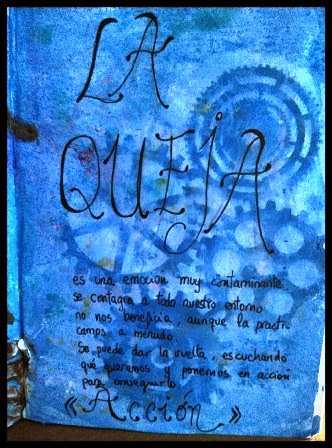 LA
QUEJA
es una emoción muy contaminante
se contagia a todo nuestro entorno
no nos beneficia, aunque la practi-
camos a menudo.
Se puede dar la vuelta, escuchando
qué queremos y ponernos en acción
para conseguirlo.
《Acción》